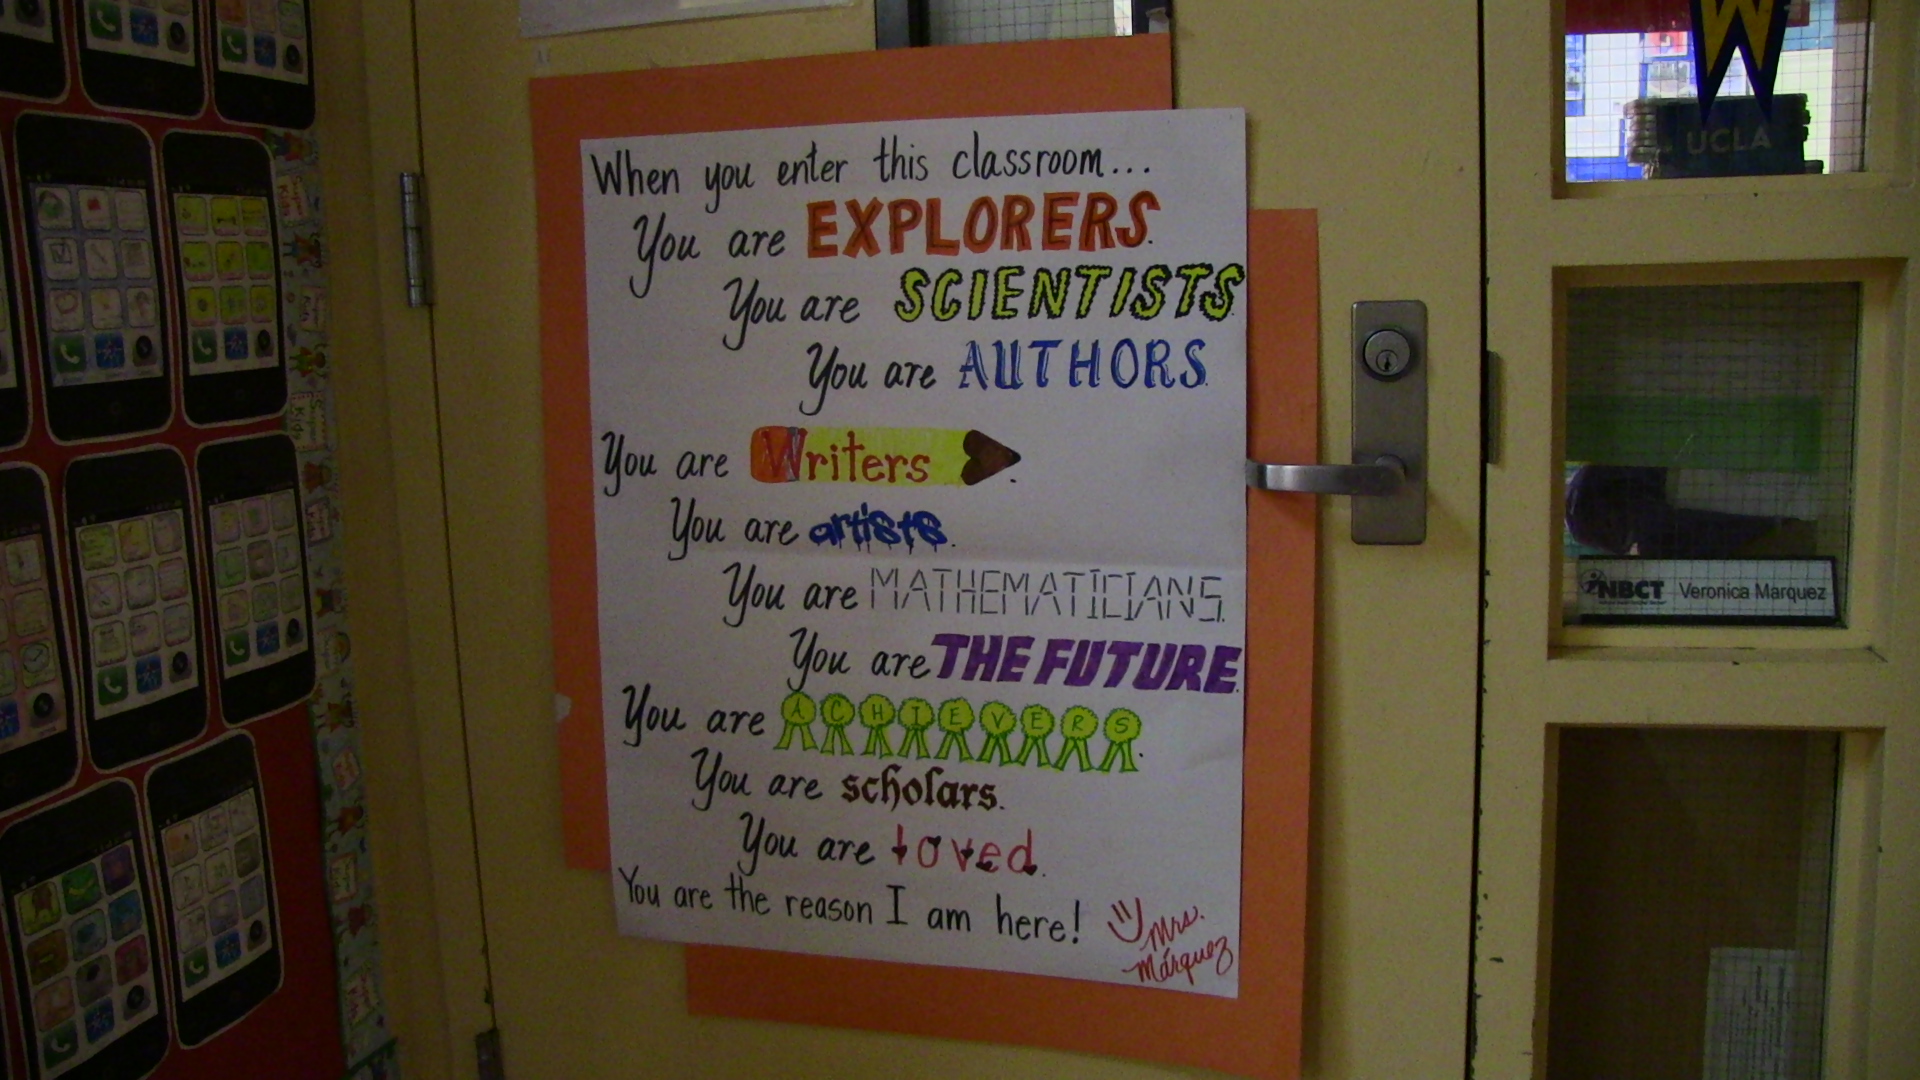 When you enter this classroom...
You are EXPLORERS.
You are SCIENTISTS.
You are AUTHORS.
You are Writers.
You are artists.
You are MATHEMATICIANS.
You are THE FUTURE.
You are ACHIEVERS.
You are scholars.
You are loved.
You are the reason I am here!
Mrs.
Márquez
W
UCLA
NBCT Veronica Marquez